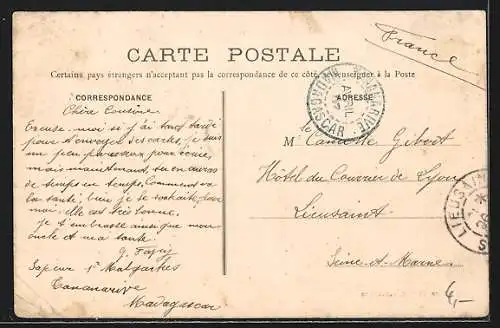 France
CARTE POSTALE
Certains pays étrangers n'acceptant pas la correspondance de ce côté, se renseigner à la Poste
CORRESPONDANCE
ADRESSE
Chère Cousine
Excuse-moi si j'ai tant tardé
pour t'envoyer des cartes, je suis
un peu paresseux pour écrire,
mais maintenant, tu en auras
de temps en temps. Comment va
la santé, bien je le souhaite, pour
moi, elle est très bonne.
Je t'embrasse ainsi que mon
oncle et ma tante
G.
Sapeur
Tananarive
Madagascar
TANANARIVE
AVRIL
MADAGASCAR
Camille
Hôtel du Courrier de Lyon
Lieusaint
Seine-et-Marne
LIEUSAINT
4,-